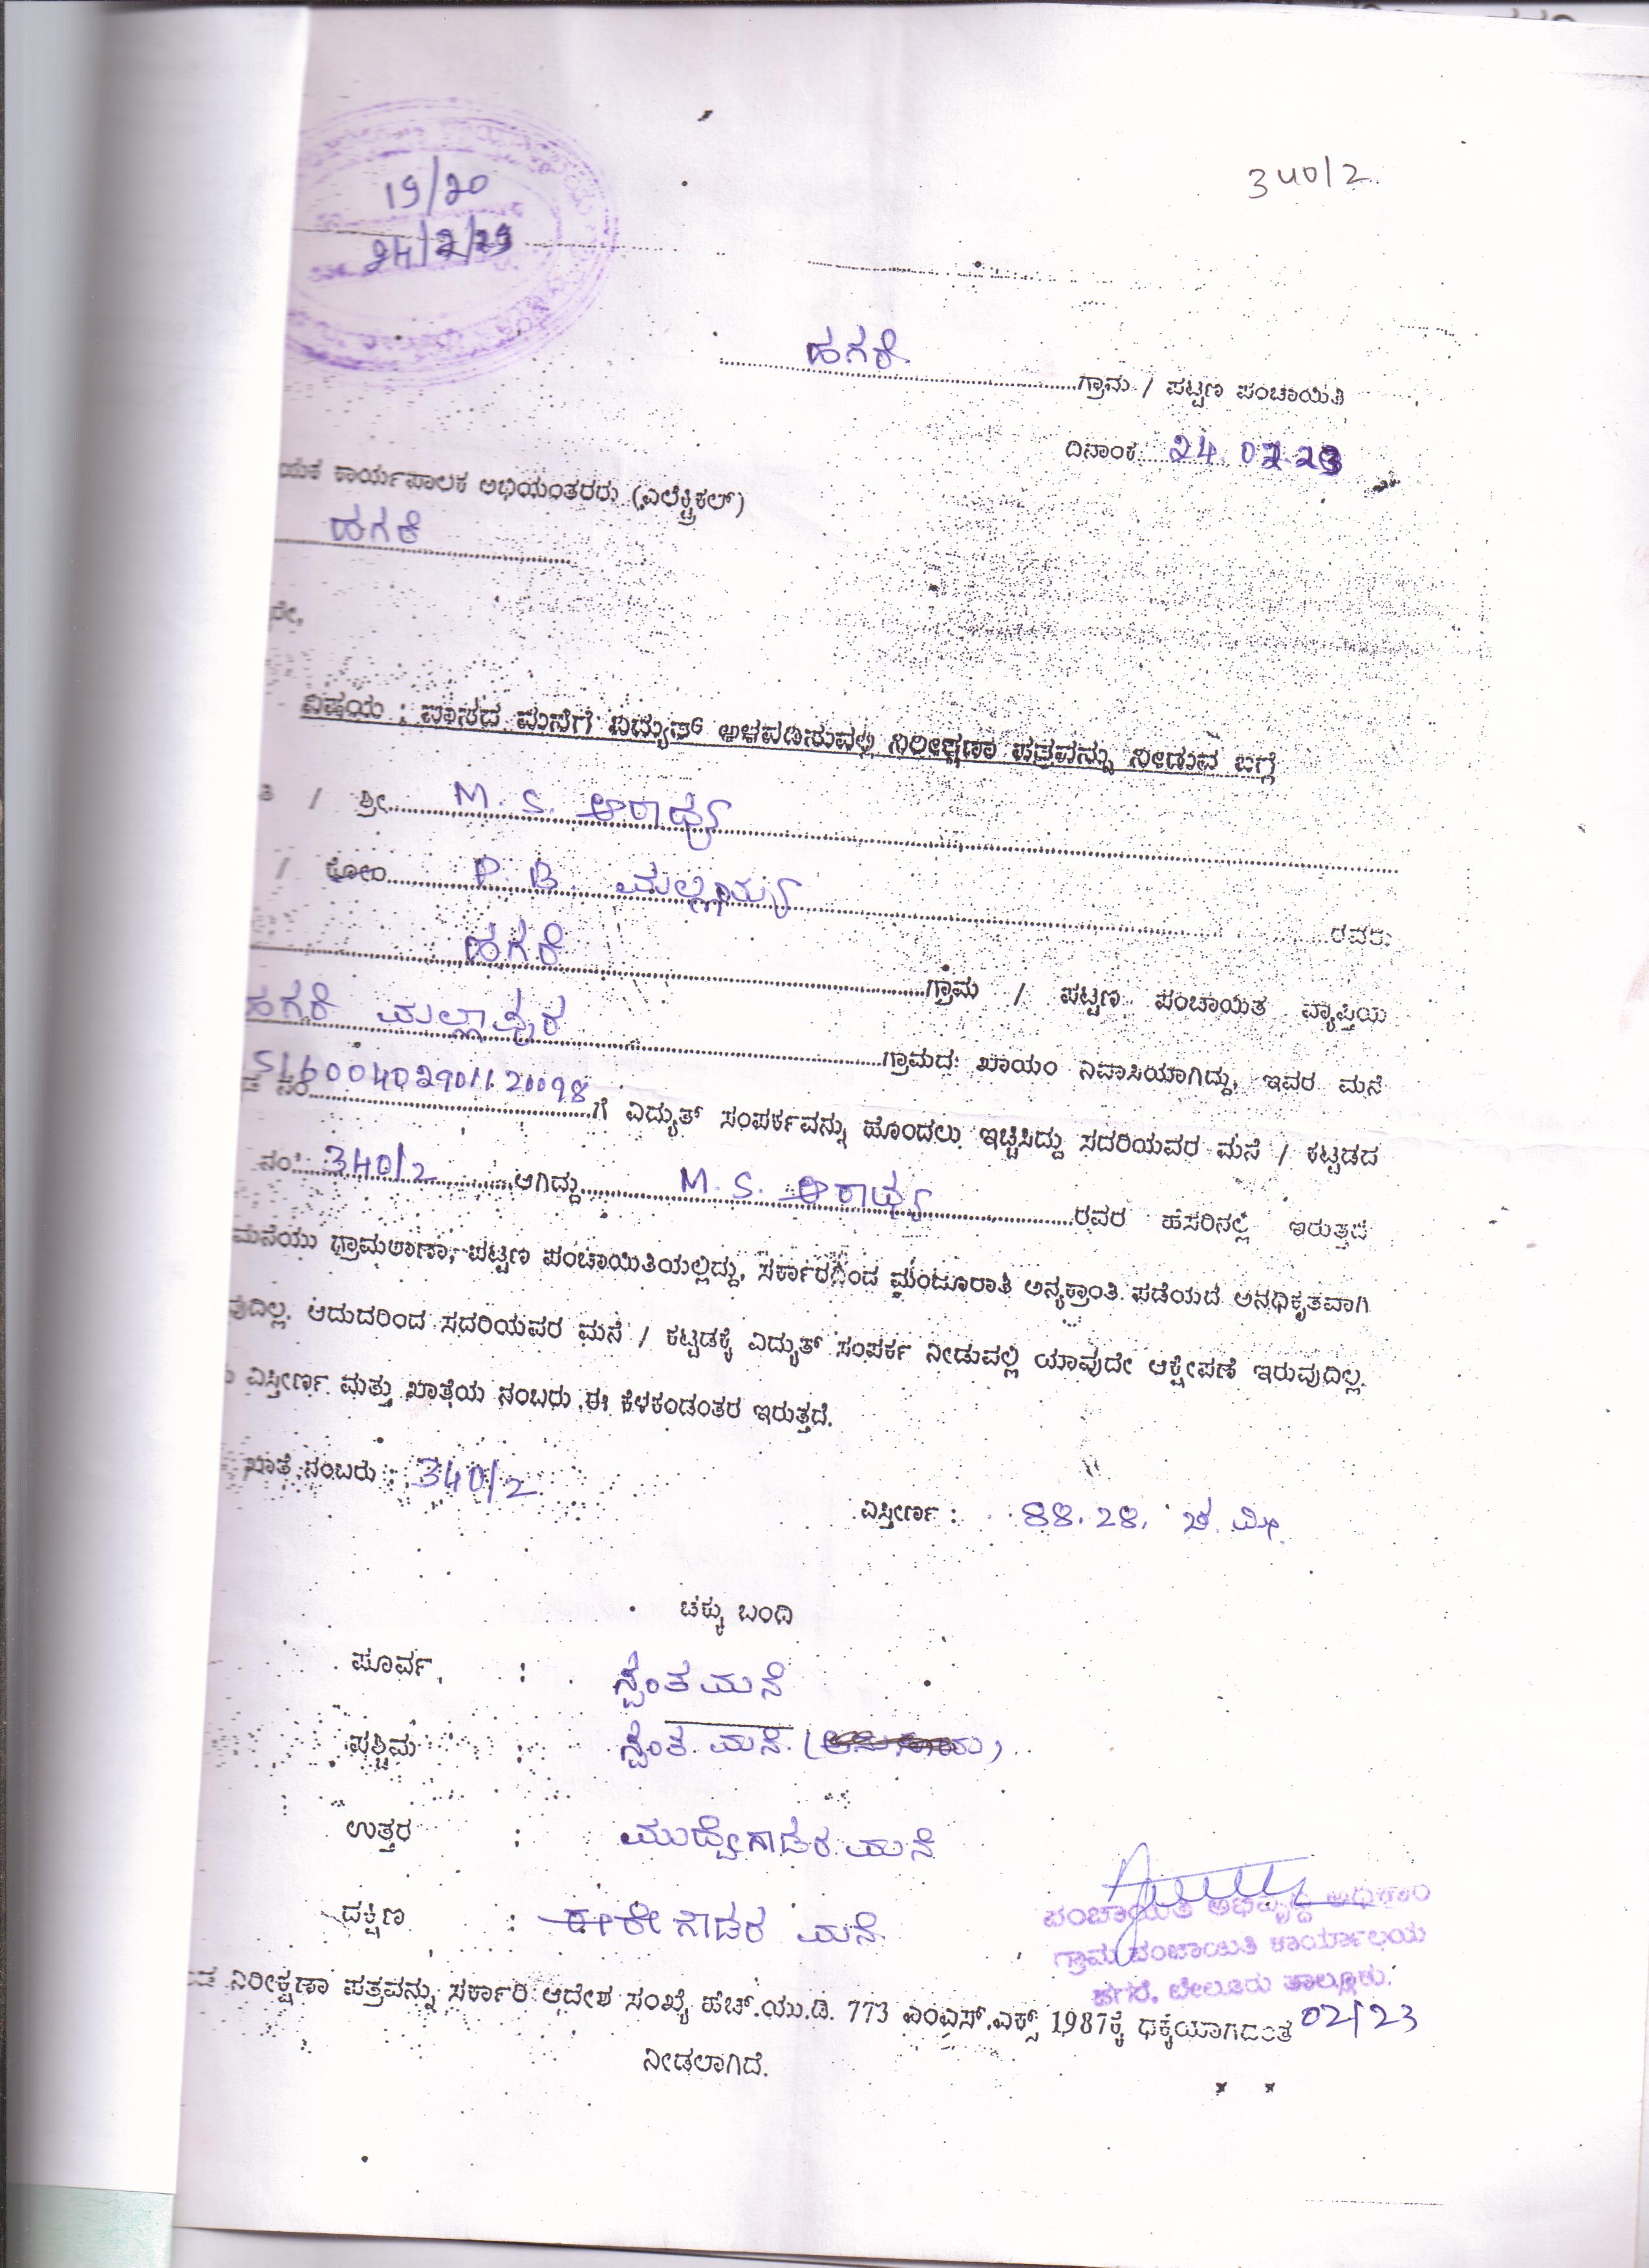 340/2
19/20
24/2/23
ಹಗರೆ ಗ್ರಾಮ / ಪಟ್ಟಣ ಪಂಚಾಯಿತಿ
ದಿನಾಂಕ 24.02.23
ಕಾರ್ಯಪಾಲಕ ಅಭಿಯಂತರರು (ಎಲೆಕ್ಟ್ರಿಕಲ್)
ಹಗರೆ
ವಿಷಯ : ವಾಸದ ಮನೆಗೆ ವಿದ್ಯುತ್ ಅಳವಡಿಸುವಲ್ಲಿ ನಿರೀಕ್ಷಣಾ ಪತ್ರವನ್ನು ನೀಡುವ ಬಗ್ಗೆ
/ ಶ್ರೀ M. S. ಆರಾಧ್ಯ
/ ಕೋಂ P. B. ಮಲ್ಲಯ್ಯ ರವರು
ಹಗರೆ ಗ್ರಾಮ / ಪಟ್ಟಣ ಪಂಚಾಯಿತ ವ್ಯಾಪ್ತಿಯ
ಹಗರೆ ಮಲ್ಲಾಪುರ ಗ್ರಾಮದ ಖಾಯಂ ನಿವಾಸಿಯಾಗಿದ್ದು, ಇವರ ಮನೆ
ನಂ ಗೆ ವಿದ್ಯುತ್ ಸಂಪರ್ಕವನ್ನು ಹೊಂದಲು ಇಚ್ಚಿಸಿದ್ದು ಸದರಿಯವರ ಮನೆ / ಕಟ್ಟಡದ
ನಂ 340/2 ಆಗಿದ್ದು M. S. ಆರಾಧ್ಯ ರವರ ಹೆಸರಿನಲ್ಲಿ ಇರುತ್ತದೆ
ಮನೆಯು ಗ್ರಾಮಠಾಣಾ, ಪಟ್ಟಣ ಪಂಚಾಯಿತಿಯಲ್ಲಿದ್ದು, ಸರ್ಕಾರದಿಂದ ಮಂಜೂರಾತಿ ಅನ್ಯಕ್ರಾಂತಿ ಪಡೆಯದೆ ಅನಧಿಕೃತವಾಗಿ
ಆದುದರಿಂದ ಸದರಿಯವರ ಮನೆ / ಕಟ್ಟಡಕ್ಕೆ ವಿದ್ಯುತ್ ಸಂಪರ್ಕ ನೀಡುವಲ್ಲಿ ಯಾವುದೇ ಆಕ್ಷೇಪಣೆ ಇರುವುದಿಲ್ಲ.
ವಿಸ್ತೀರ್ಣ ಮತ್ತು ಖಾತೆಯ ನಂಬರು ಈ ಕೆಳಕಂಡಂತರ ಇರುತ್ತದೆ.
ಖಾತೆ ನಂಬರು : 340/2
ವಿಸ್ತೀರ್ಣ : 88.28. ಚ. ಮೀ.
ಚಕ್ಕು ಬಂದಿ
ಪೂರ್ವ : ಸ್ವಂತ ಮನೆ
ಪಶ್ಚಿಮ : ಸ್ವಂತ ಮನೆ
ಉತ್ತರ : ಮುದ್ದೇಗೌಡರ ಮನೆ
ದಕ್ಷಿಣ : ಈರೇಗೌಡರ ಮನೆ
ಪಂಚಾಯಿತಿ ಅಭಿವೃದ್ಧಿ ಅಧಿಕಾರಿ
ಗ್ರಾಮ ಪಂಚಾಯಿತಿ ಕಾರ್ಯಾಲಯ
ಹಗರೆ, ಬೇಲೂರು ತಾಲ್ಲೂಕು.
ನಿರೀಕ್ಷಣಾ ಪತ್ರವನ್ನು ಸರ್ಕಾರಿ ಆದೇಶ ಸಂಖ್ಯೆ ಹೆಚ್.ಯು.ಡಿ. 773 ಎಂಎಸ್.ಎಕ್ಸ್ 1987ಕ್ಕೆ ಧಕ್ಕೆಯಾಗದಂತೆ 02/23
ನೀಡಲಾಗಿದೆ.